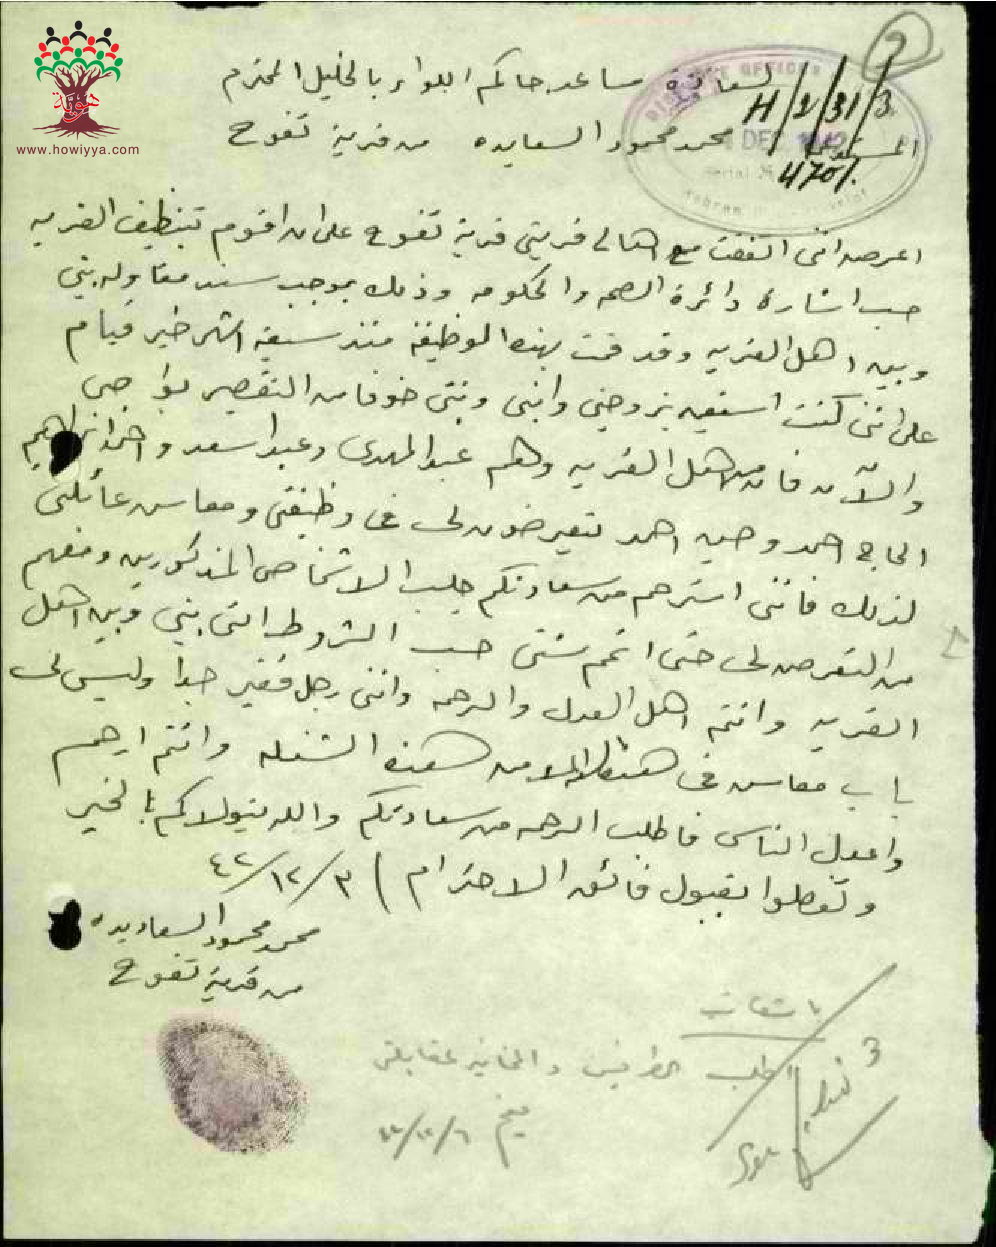 هوية
www.howiyya.com
DISTRICT OFFICER
H/2/31/3
4 DEC 1942
470/.
لسعادة مساعد حاكم اللواء بالخليل المحترم
المستدعي محمد محمود السعايده من قرية تفوح
اعرض انني اتفقت مع اهالي قريتي قرية تفوح على ان اقوم بتنظيف القريه
حسب اشارة دائرة الصحه والحكومه وذلك بموجب سند مقاوله بيني
وبين اهل القريه وقد قمت بهذه الوظيفة منذ سبعة اشهر خير قيام
على انني كنت استعين بزوجتي وابني وبنتي خوفا من التقصير بواجبي
والآن فان من اهل القريه وهم عبد المهدي وعبد اسعد واخيه ابراهيم
الحاج احمد وحسين احمد يتعرضون لي في وظيفتي ومعاش عائلتي
لذلك فانني استرحم من سعادتكم جلب الاشخاص المذكورين ومنعهم
من التعرض لي حتى اتمم سنتي حسب الشروط التي بيني وبين اهل
القريه وانتم اهل العدل والرحمه وانني رجل فقير جدا وليس لي
باب معاش في هذه الايام من هذه الشغله وانتم ارحم
واعدل الناس فاطلب الرحمه من سعادتكم والله يتولاكم بالخير
وتفضلوا بقبول فائق الاحترام ) ٣/١٢/٤٢
محمد محمود السعايده
من قرية تفوح
3
اطلب والمخاتير لمقابلتي
٦/١٢/٤٢